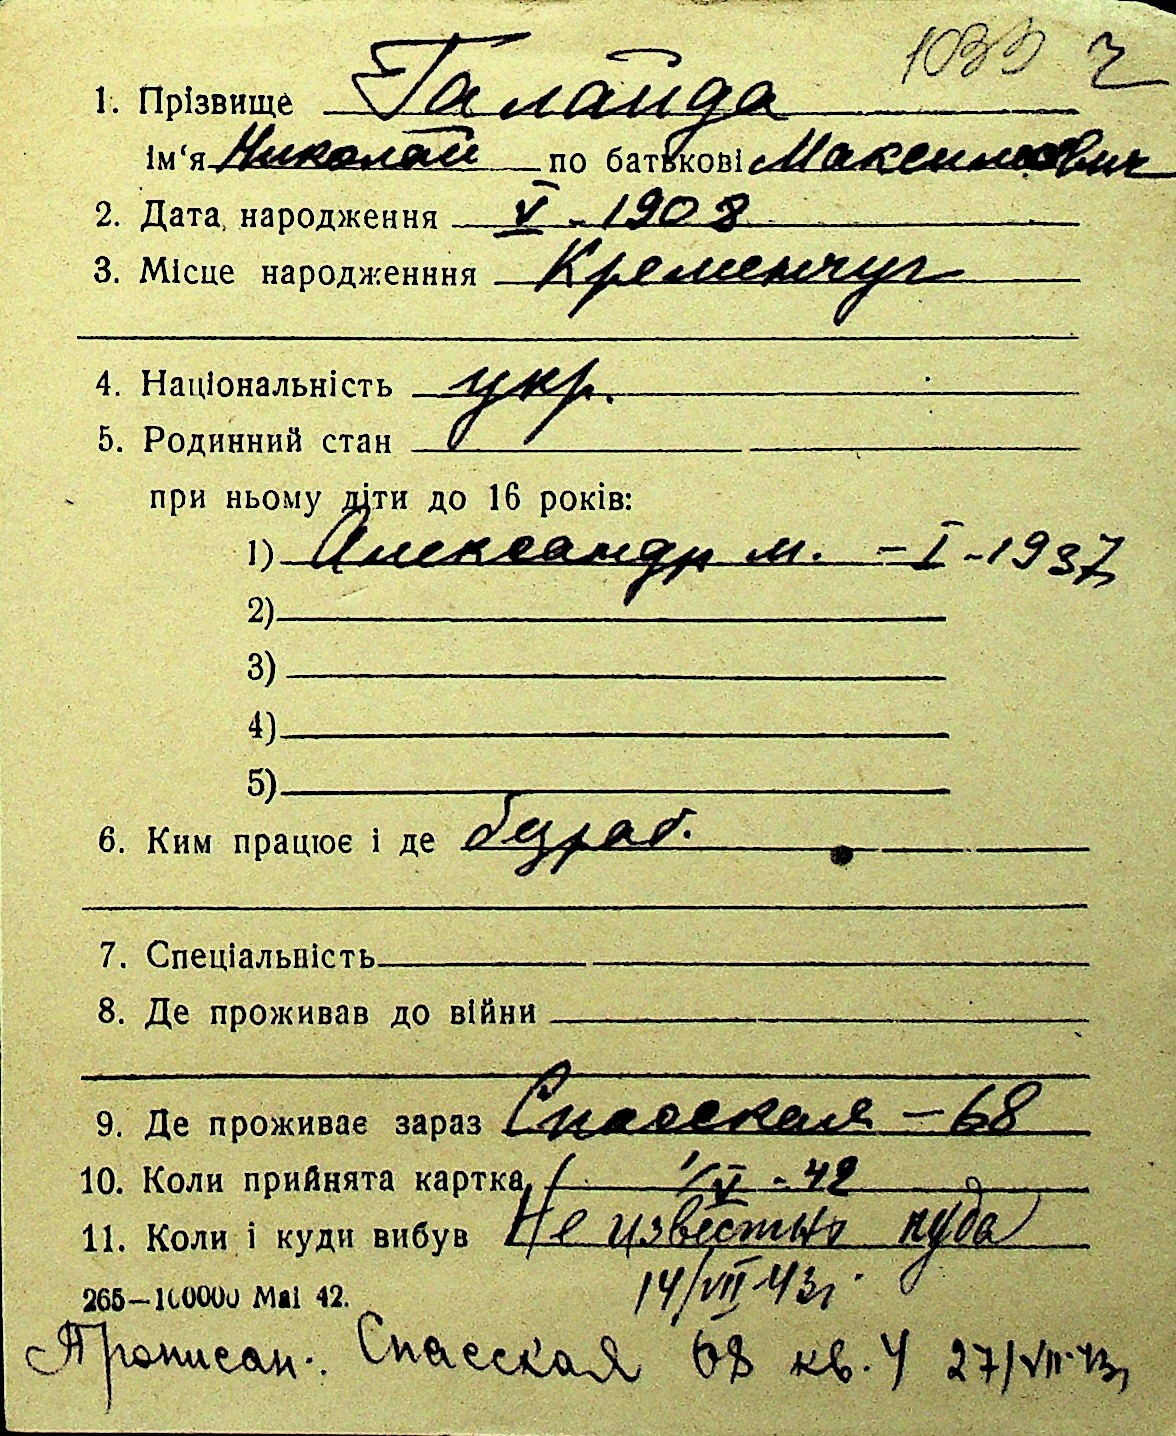 1033 2
1. Прізвище Галайда
ім‘я Николай по батькові Максимович
2. Дата народження V - 1908
3. Місце народженння Кременчуг
4. Національність укр.
5. Родинний стан
при ньому діти до 16 років:
1) Александр м. – I - 1937
2)
3)
4)
5)
6. Ким працює і де безраб.
7. Спеціальність
8. Де проживав до війни
9. Де проживає зараз Спасская – 68
10. Коли прийнята картка 1/V - 42
11. Коли і куди вибув Не известно куда
14/VII 43г.
265—100000 Маі 42.
Прописан. Спасская 68 кв. 4 27/VII-43г